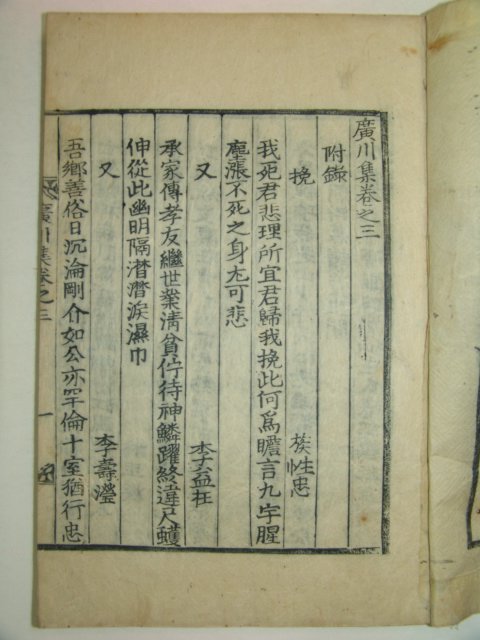 廣川集卷之三
附錄
挽 族性忠
我死君悲理所宜君歸我挽此何爲瞻言九宇腥
塵漲不死之身尤可悲
又 李益枉
承家傳孝友繼世業淸貧佇待神鱗躍終違尺蠖
伸從此幽明隔潸潸淚濕巾
又 李壽瀅
吾鄕善俗日沉淪剛介如公亦罕倫十室猶行忠
廣川集卷之三 一